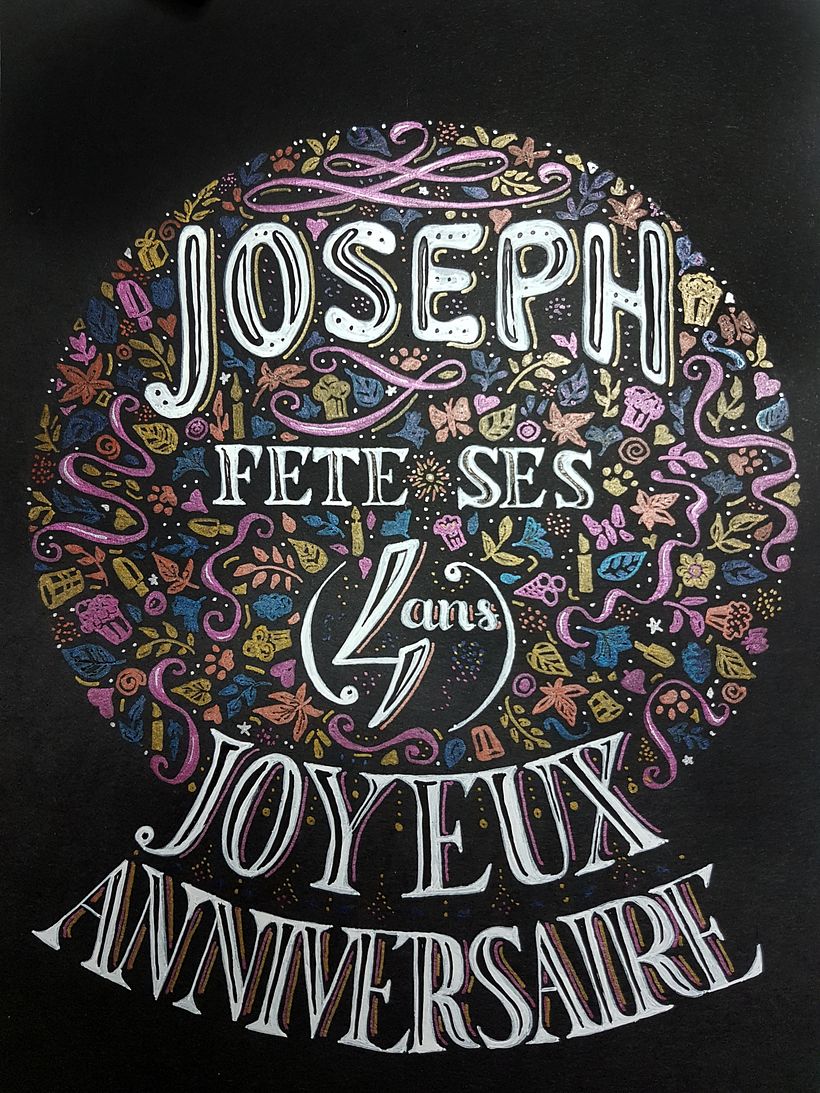 JOSEPH
FETE SES
4 ans
JOYEUX
ANNIVERSAIRE